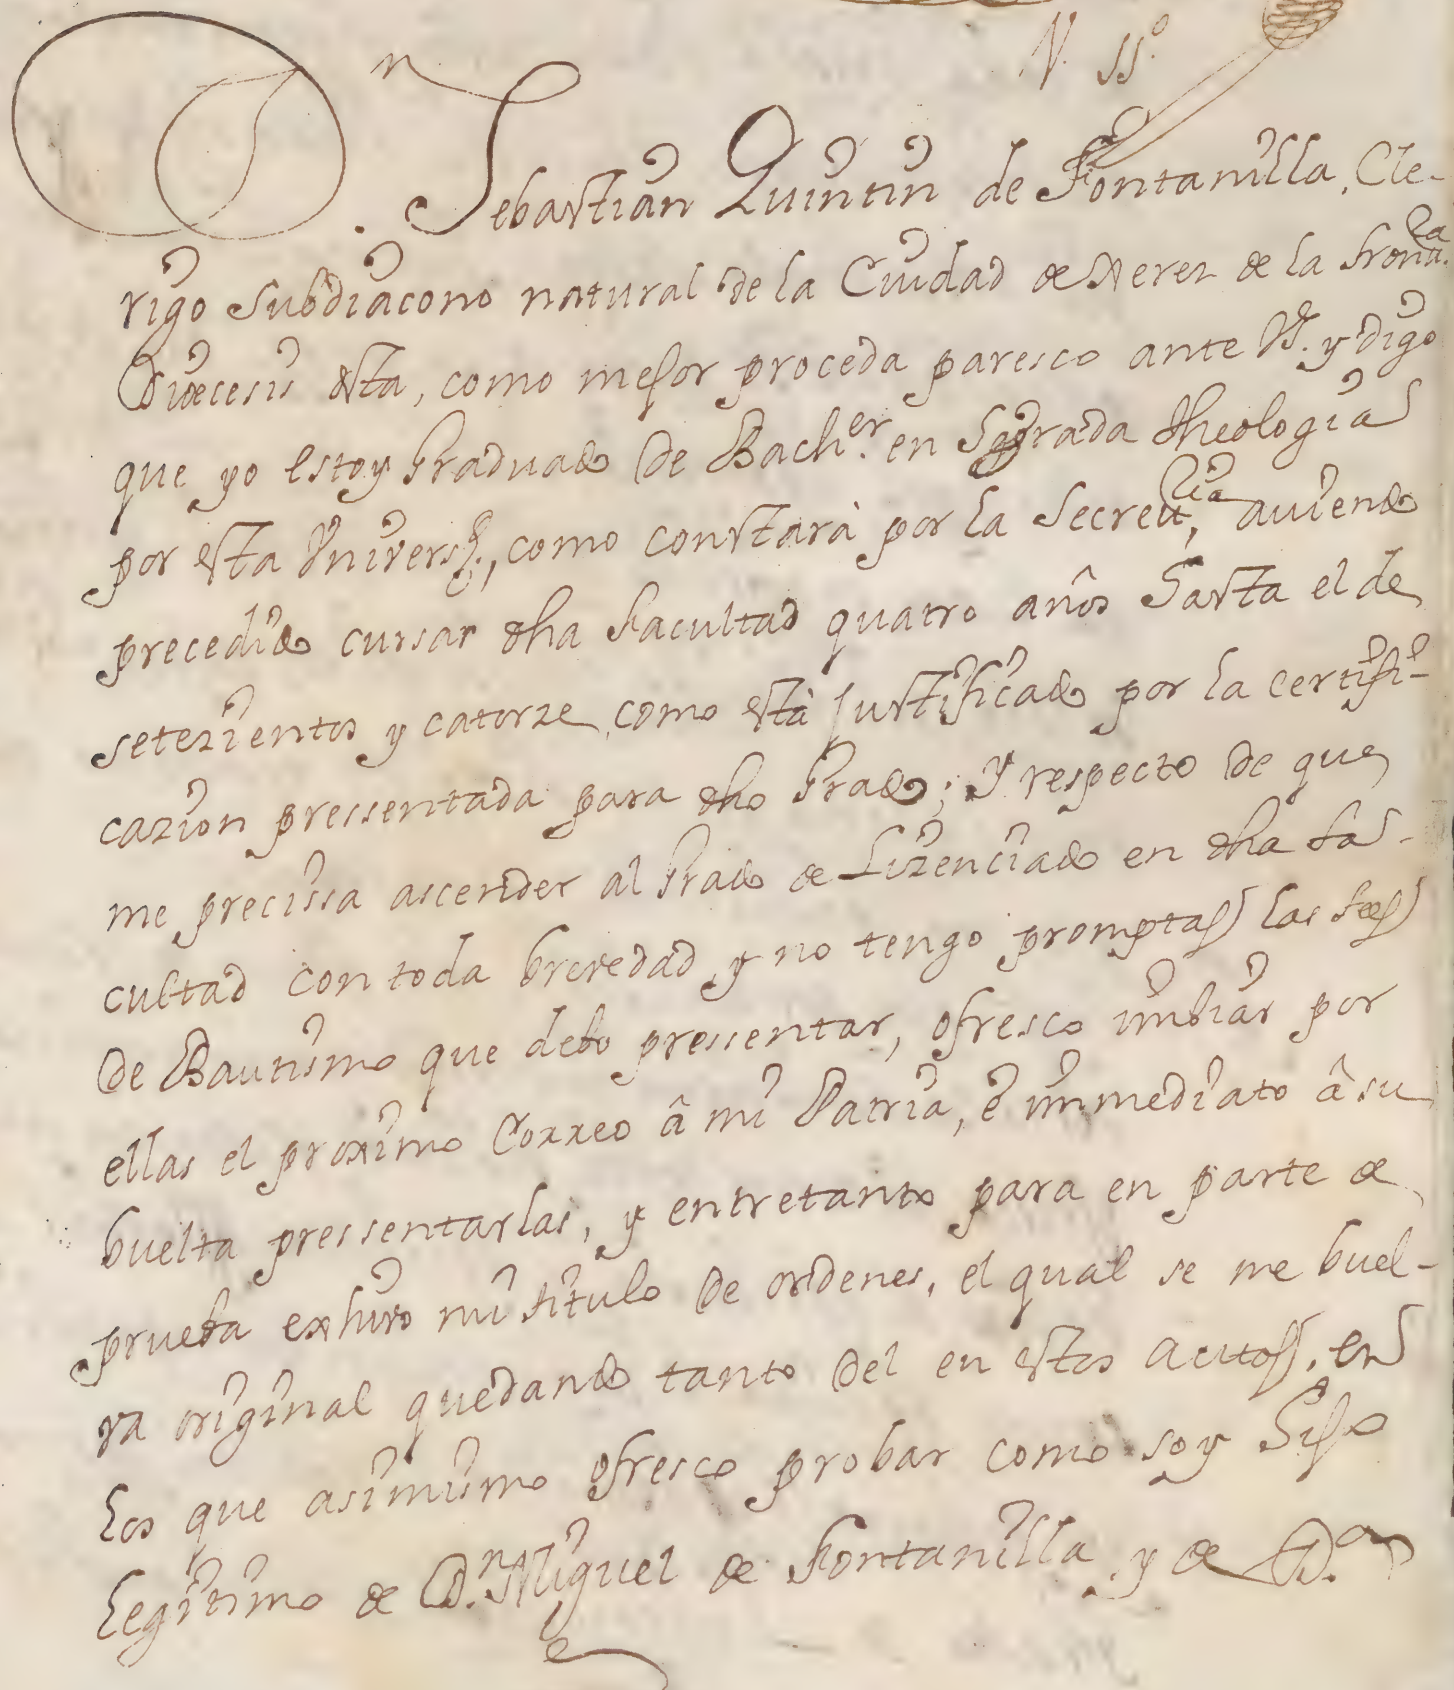 N. SS.º
D.n Sebastian Quintin de Fontanilla, Cle-
rigo Subdiacono natural de la Ciudad de Xerez de la Front.ra
Diœcesis esta, como mejor proceda paresco ante VS. y digo
que yo estoy Graduado de Bach.er en Sagrada theologia
por esta Univers.d, como constarà por la Secret.ria, aviendo
precedido cursar dha Facultad quatro años hasta el de
setezientos y catorze, como està justificado por la certifi-
cazion pressentada para dho Grado; Y respecto de que
me precissa ascender al Grado de Lizenciado en dha Fa-
cultad con toda brevedad, y no tengo promptas las fees
de Bautismo que debo pressentar, ofresco imbiar por
ellas el proximo Correo â mi Patria, ê immediato â su
buelta pressentarlas, y entretanto para en parte de
prueba exhivo mi titulo de ordenes, el qual se me buel-
va original quedando tanto del en estos autos, en
los que asimismo ofresco probar como soy hijo
legitimo de D.n Miguel de Fontanilla, y de D.a